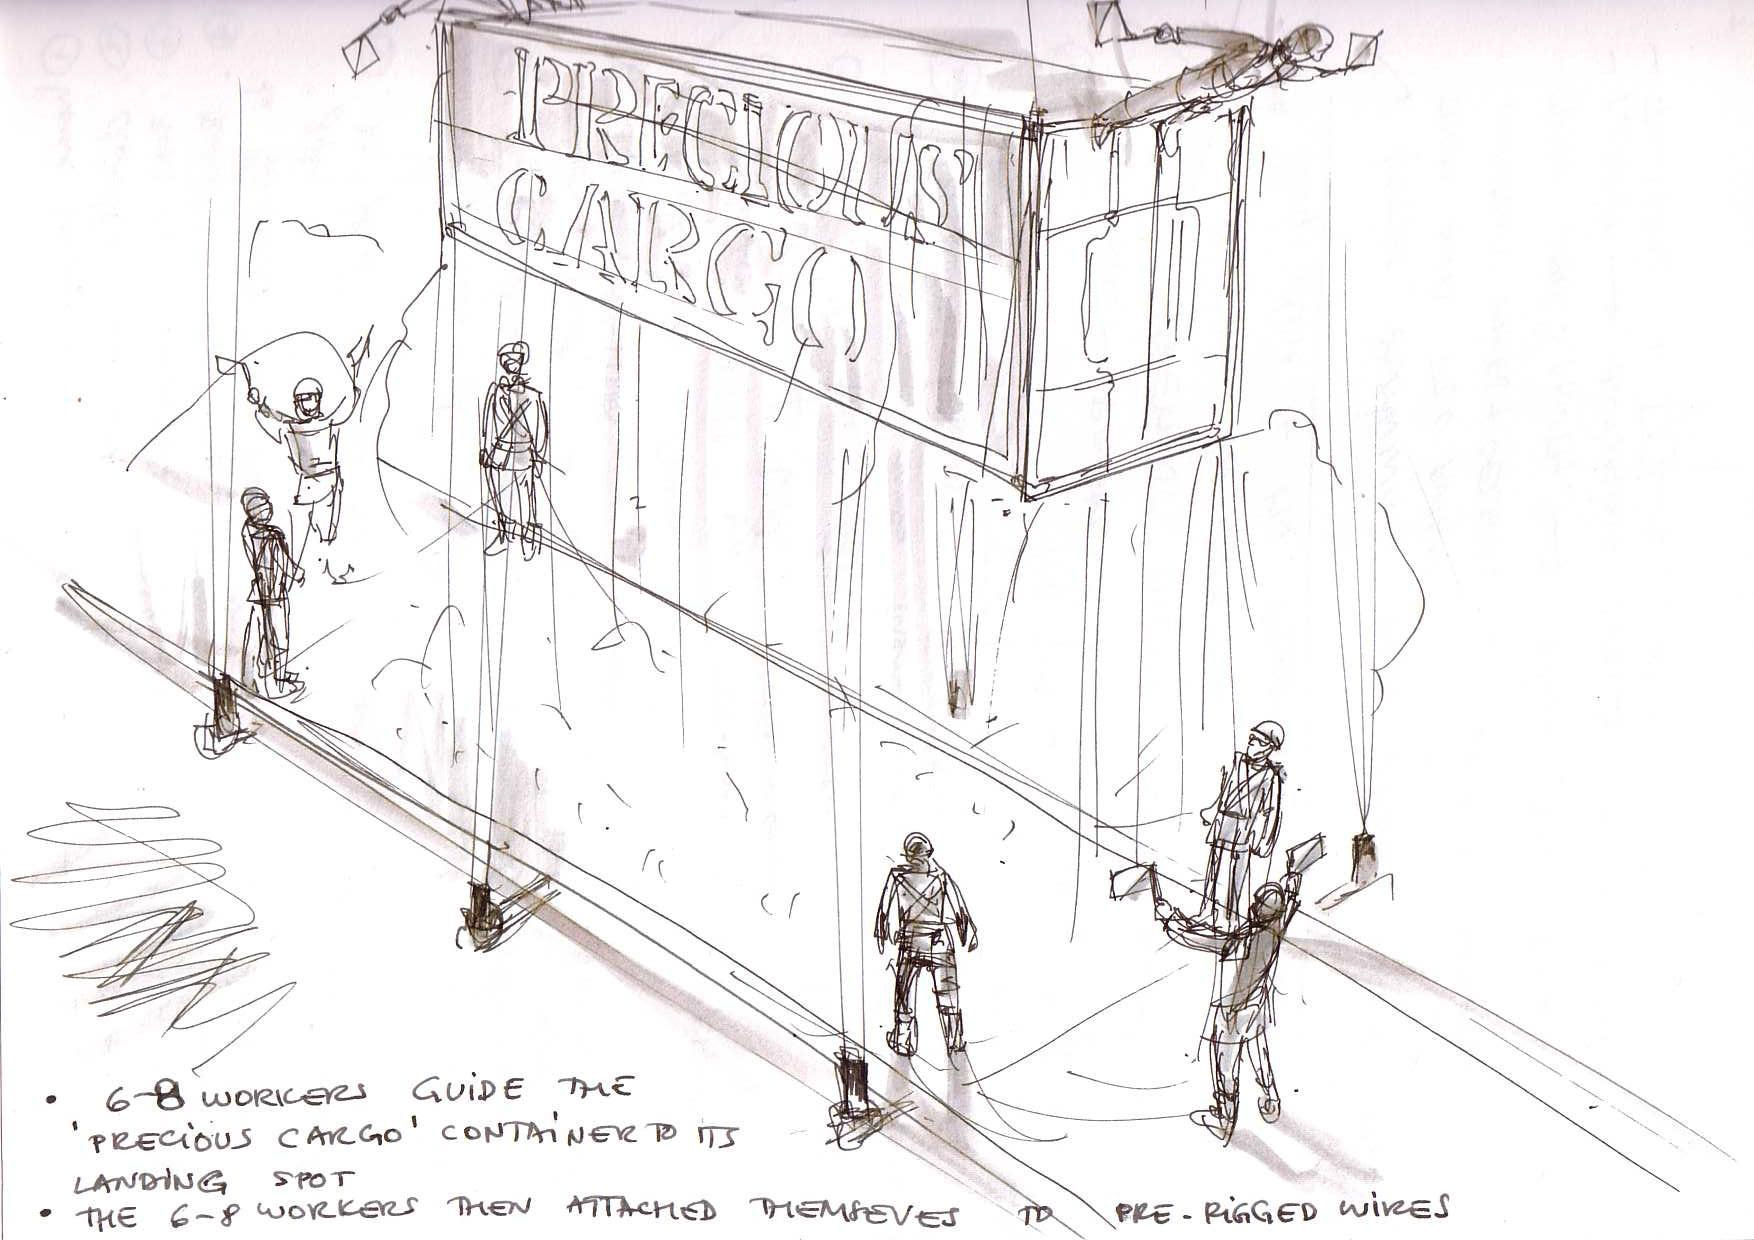 PRECIOUS
CARGO
• 6-8 WORKERS GUIDE THE
'PRECIOUS CARGO' CONTAINER TO ITS
LANDING SPOT
• THE 6-8 WORKERS THEN ATTACHED THEMSEVES TO PRE-RIGGED WIRES